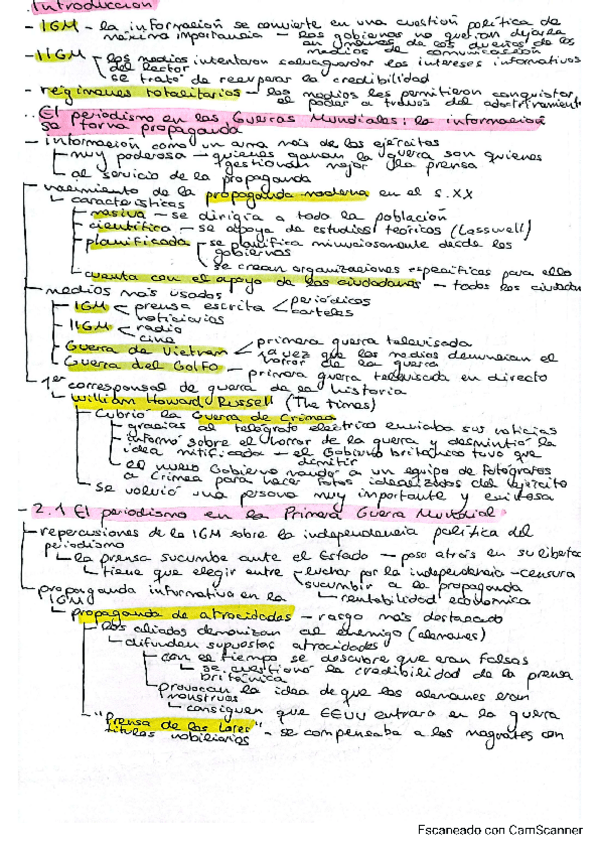 Introducción
- IGM - la información se convierte en una cuestión política de
máxima importancia - los gobiernos no querían dejarla
en manos de los dueños de los
medios de comunicación
- IIGM - los medios intentaron salvaguardar los intereses informativos
del lector
se trató de recuperar la credibilidad
- regímenes totalitarios - los medios les permitieron conquistar
el poder a través del adoctrinamiento
El periodismo en las Guerras Mundiales: la información
se torna propaganda
- información como un arma más de los ejércitos
muy poderosa - quienes ganan la guerra son quienes
gestionan mejor la prensa
al servicio de la propaganda
- nacimiento de la propaganda moderna en el s.XX
características
masiva - se dirigía a toda la población
científica - se apoya de estudios teóricos (Lasswell)
planificada - se planifica minuciosamente desde los
gobiernos
se crean organizaciones específicas para ello
cuenta con el apoyo de los ciudadanos - todos los ciudadan
- medios más usados
IGM < prensa escrita < periódicos
noticiarios carteles
IIGM < radio
cine
Guerra de Vietnam < primera guerra televisada
1a vez que los medios denuncian el
horror de la guerra
Guerra del Golfo - primera guerra televisada en directo
1er corresponsal de guerra de la historia
William Howard Russell (The Times)
cubrió la Guerra de Crimea
gracias al telégrafo eléctrico enviaba sus noticias
informó sobre el horror de la guerra y desmintió la
idea mitificada - el Gobierno británico tuvo que
dimitir
el nuevo Gobierno mandó a un equipo de fotógrafos
a Crimea para hacer fotos idealizadas del ejército
se volvió una persona muy importante y exitosa
- 2.1 El periodismo en la Primera Guerra Mundial
repercusiones de la IGM sobre la independencia política del
periodismo
la prensa sucumbe ante el Estado - paso atrás en su liberta
tiene que elegir entre - luchar por la independencia - censura
sucumbir a la propaganda
rentabilidad económica
propaganda informativa en la
IGM
propaganda de atrocidades - rasgo más destacado
los aliados demonizan al enemigo (alemanes)
difunden supuestas atrocidades
con el tiempo se descubre que eran falsas
se cuestionó la credibilidad de la prensa
británica
provocan la idea de que los alemanes eran
monstruos
consiguen que EEUU entrara en la guerra
"Prensa de los Lores" - se compensaba a los magnates con
títulos nobiliarios
Escaneado con CamScanner